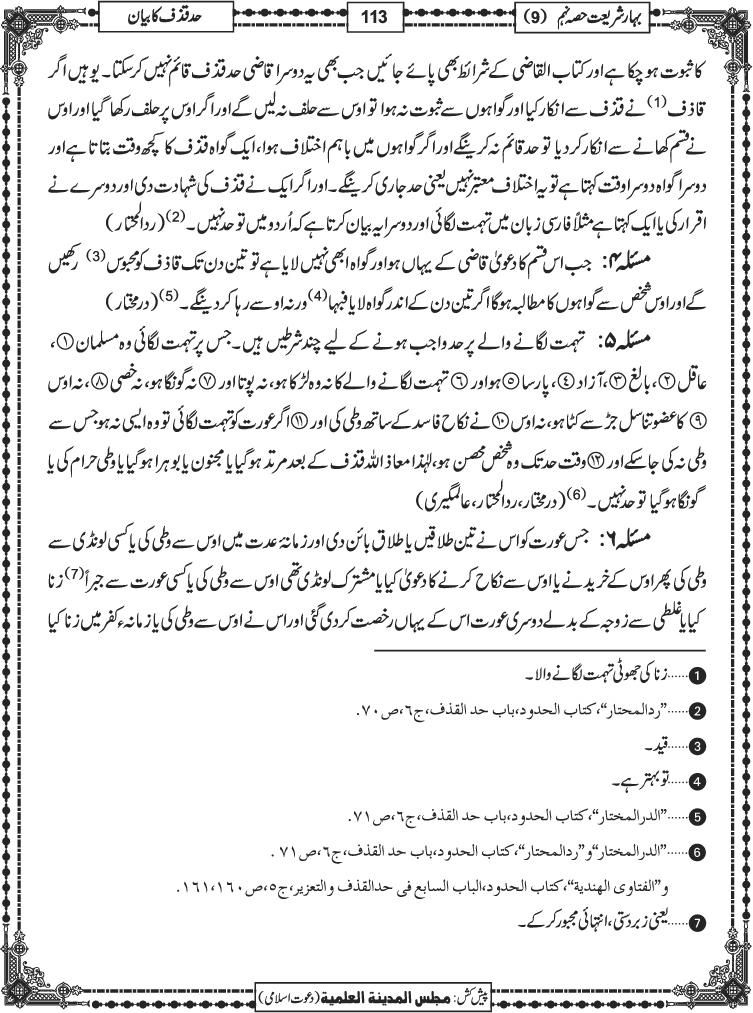 بہارِ شریعت حصہ نہم (9)
113
حد قذف کا بیان
کا ثبوت ہو چکا ہے اور کتاب القاضی کے شرائط بھی پائے جائیں جب بھی یہ دوسرا قاضی حد قذف قائم نہیں کرسکتا۔ یوہیں اگر
قاذف(1) نے قذف سے انکار کیا اور گواہوں سے ثبوت نہ ہوا تو اوس سے حلف نہ لیں گے اور اگر اوس پر حلف رکھا گیا اور اوس
نے قسم کھانے سے انکار کر دیا تو حد قائم نہ کرینگے اور اگر گواہوں میں باہم اختلاف ہوا، ایک گواہ قذف کا کچھ وقت بتاتا ہے اور
دوسرا گواہ دوسرا وقت کہتا ہے تو یہ اختلاف معتبر نہیں یعنی حد جاری کرینگے۔ اور اگر ایک نے قذف کی شہادت دی اور دوسرے نے
اقرار کی یا ایک کہتا ہے مثلاً فارسی زبان میں تہمت لگائی اور دوسرا یہ بیان کرتا ہے کہ اُردو میں تو حد نہیں۔(2) (ردالمحتار)
مسئلہ ۴: جب اس قسم کا دعویٰ قاضی کے یہاں ہو اور گواہ ابھی نہیں لایا ہے تو تین دن تک قاذف کو محبوس(3) رکھیں
گے اور اوس شخص سے گواہوں کا مطالبہ ہوگا اگر تین دن کے اندر گواہ لایا فبہا(4) ورنہ اوسے رہا کر دینگے۔(5) (درمختار)
مسئلہ ۵: تہمت لگانے والے پر حد واجب ہونے کے لیے چند شرطیں ہیں۔ جس پر تہمت لگائی وہ مسلمان ①،
عاقل ②، بالغ ③، آزاد ④، پارسا ⑤ ہو اور ⑥ تہمت لگانے والے کا نہ وہ لڑکا ہو، نہ پوتا اور ⑦ نہ گونگا ہو، نہ خصی ⑧، نہ اوس
⑨ کا عضو تناسل جڑ سے کٹا ہو، نہ اوس ⑩ نے نکاح فاسد کے ساتھ وطی کی اور ⑪ اگر عورت کو تہمت لگائی تو وہ ایسی نہ ہو جس سے
وطی نہ کی جا سکے اور ⑫ وقت حد تک وہ شخص محصن ہو، لہٰذا معاذ اللہ قذف کے بعد مرتد ہوگیا یا مجنون یا بوہرا ہوگیا یا وطی حرام کی یا
گونگا ہوگیا تو حد نہیں۔(6) (درمختار، ردالمحتار، عالمگیری)
مسئلہ ۶: جس عورت کو اس نے تین طلاقیں یا طلاق بائن دی اور زمانۂ عدت میں اوس سے وطی کی یا کسی لونڈی سے
وطی کی پھر اوس کے خریدنے یا اوس سے نکاح کرنے کا دعویٰ کیا یا مشترک لونڈی تھی اوس سے وطی کی یا کسی عورت سے جبراً(7) زنا
کیا یا غلطی سے زوجہ کے بدلے دوسری عورت اس کے یہاں رخصت کر دی گئی اور اس نے اوس سے وطی کی یا زمانہء کفر میں زنا کیا
❶......زنا کی جھوٹی تہمت لگانے والا۔
❷......”ردالمحتار“، کتاب الحدود، باب حد القذف، ج٦، ص٧٠.
❸......قید۔
❹......تو بہتر ہے۔
❺......”الدرالمختار“، کتاب الحدود، باب حد القذف، ج٦، ص٧١.
❻......”الدرالمختار“ و”ردالمحتار“، کتاب الحدود، باب حد القذف، ج٦، ص٧١.
و”الفتاوی الهندية“، کتاب الحدود، الباب السابع فی حدالقذف والتعزیر، ج٥، ص١٦٠،١٦١.
❼......یعنی زبردستی، انتہائی مجبور کر کے۔
پیش کش: مجلس المدینة العلمیة (دعوت اسلامی)